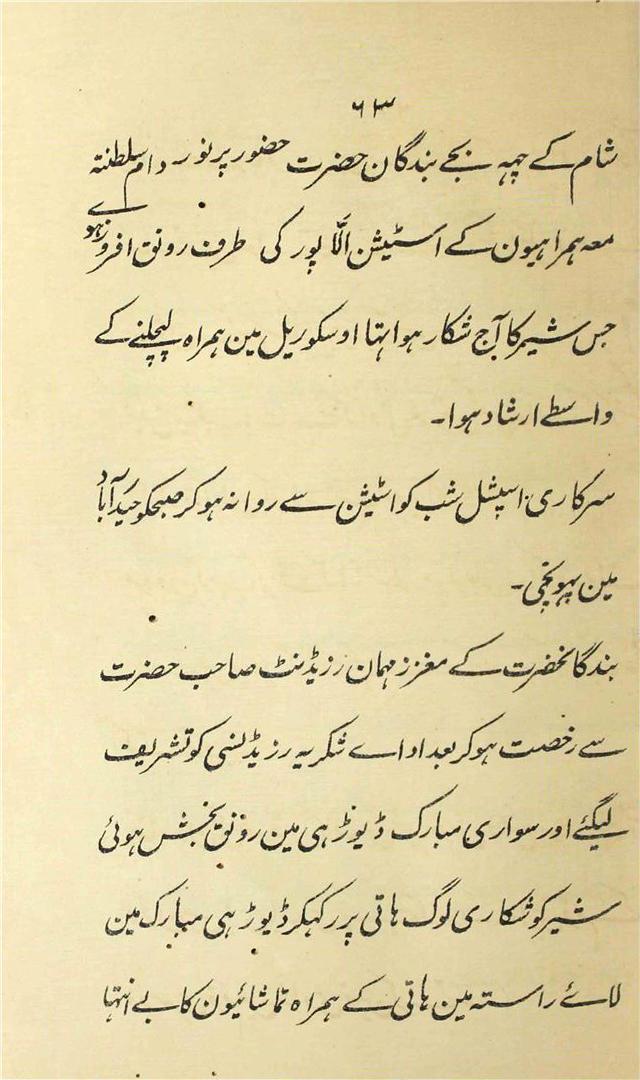 ۶۳
شام کے چہہ بجے بندگان حضرت حضور پرنور دام سلطنتہ
معہ ہمراہیون کے اسٹیشن الّا پور کی طرف رونق افروز ہوے
جس شیر کا آج شکار ہوا تہا اوسکو ریل مین ہمراہ لیچلنے کے
واسطے ارشاد ہوا۔
سرکاری اسپشل شب کو اسٹیشن سے روانہ ہو کر صبحکو حیدرآباد
مین پہونچی۔
بندگانحضرت کے معزز مہمان رزیڈنٹ صاحب حضرت
سے رخصت ہو کر بعد اداے شکریہ رزیڈنسی کو تشریف
لیگئے اور سواری مبارک ڈیوڑہی مین رونق بخش ہوئی
شیر کو شکاری لوگ ہاتی پر رکہکر ڈیوڑہی مبارک مین
لاے راستہ مین ہاتی کے ہمراہ تماشائیون کا بے انتہا